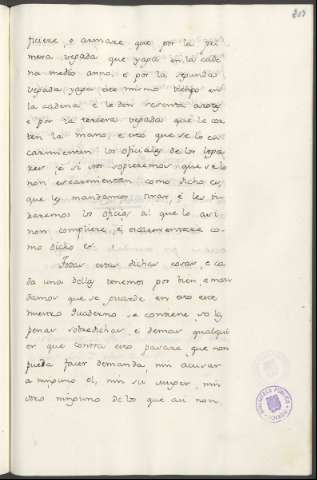 ficiere, o armare que por la pri
mera vegada que yaga en la cade
na medio anno, e por la segunda
vegada yaga este mismo tiempo en
la cadena e le den sesenta azotes
e por la tercera vegada que le cor
ten la mano, e esto que se lo es
carmienten los oficiales de los loga
res, e si nos sopieremos que se lo
non escarmientan como dicho es,
que les mandamos tirar, e les ti
raremos los oficios al que lo asi
non compliere, e escarmentarse co
mo dicho es.
Todas estas dichas cosas, e ca
da una dellas tenemos por bien, e man
damos que se guarde en
mestro Quaderno se contiene, so las
penas sobredichas, e demas qualqui
er que contra esto pasare, que non
pueda facer demanda, nin acusar
a ninguno el, nin su muger, nin
otro ninguno de los que asi non